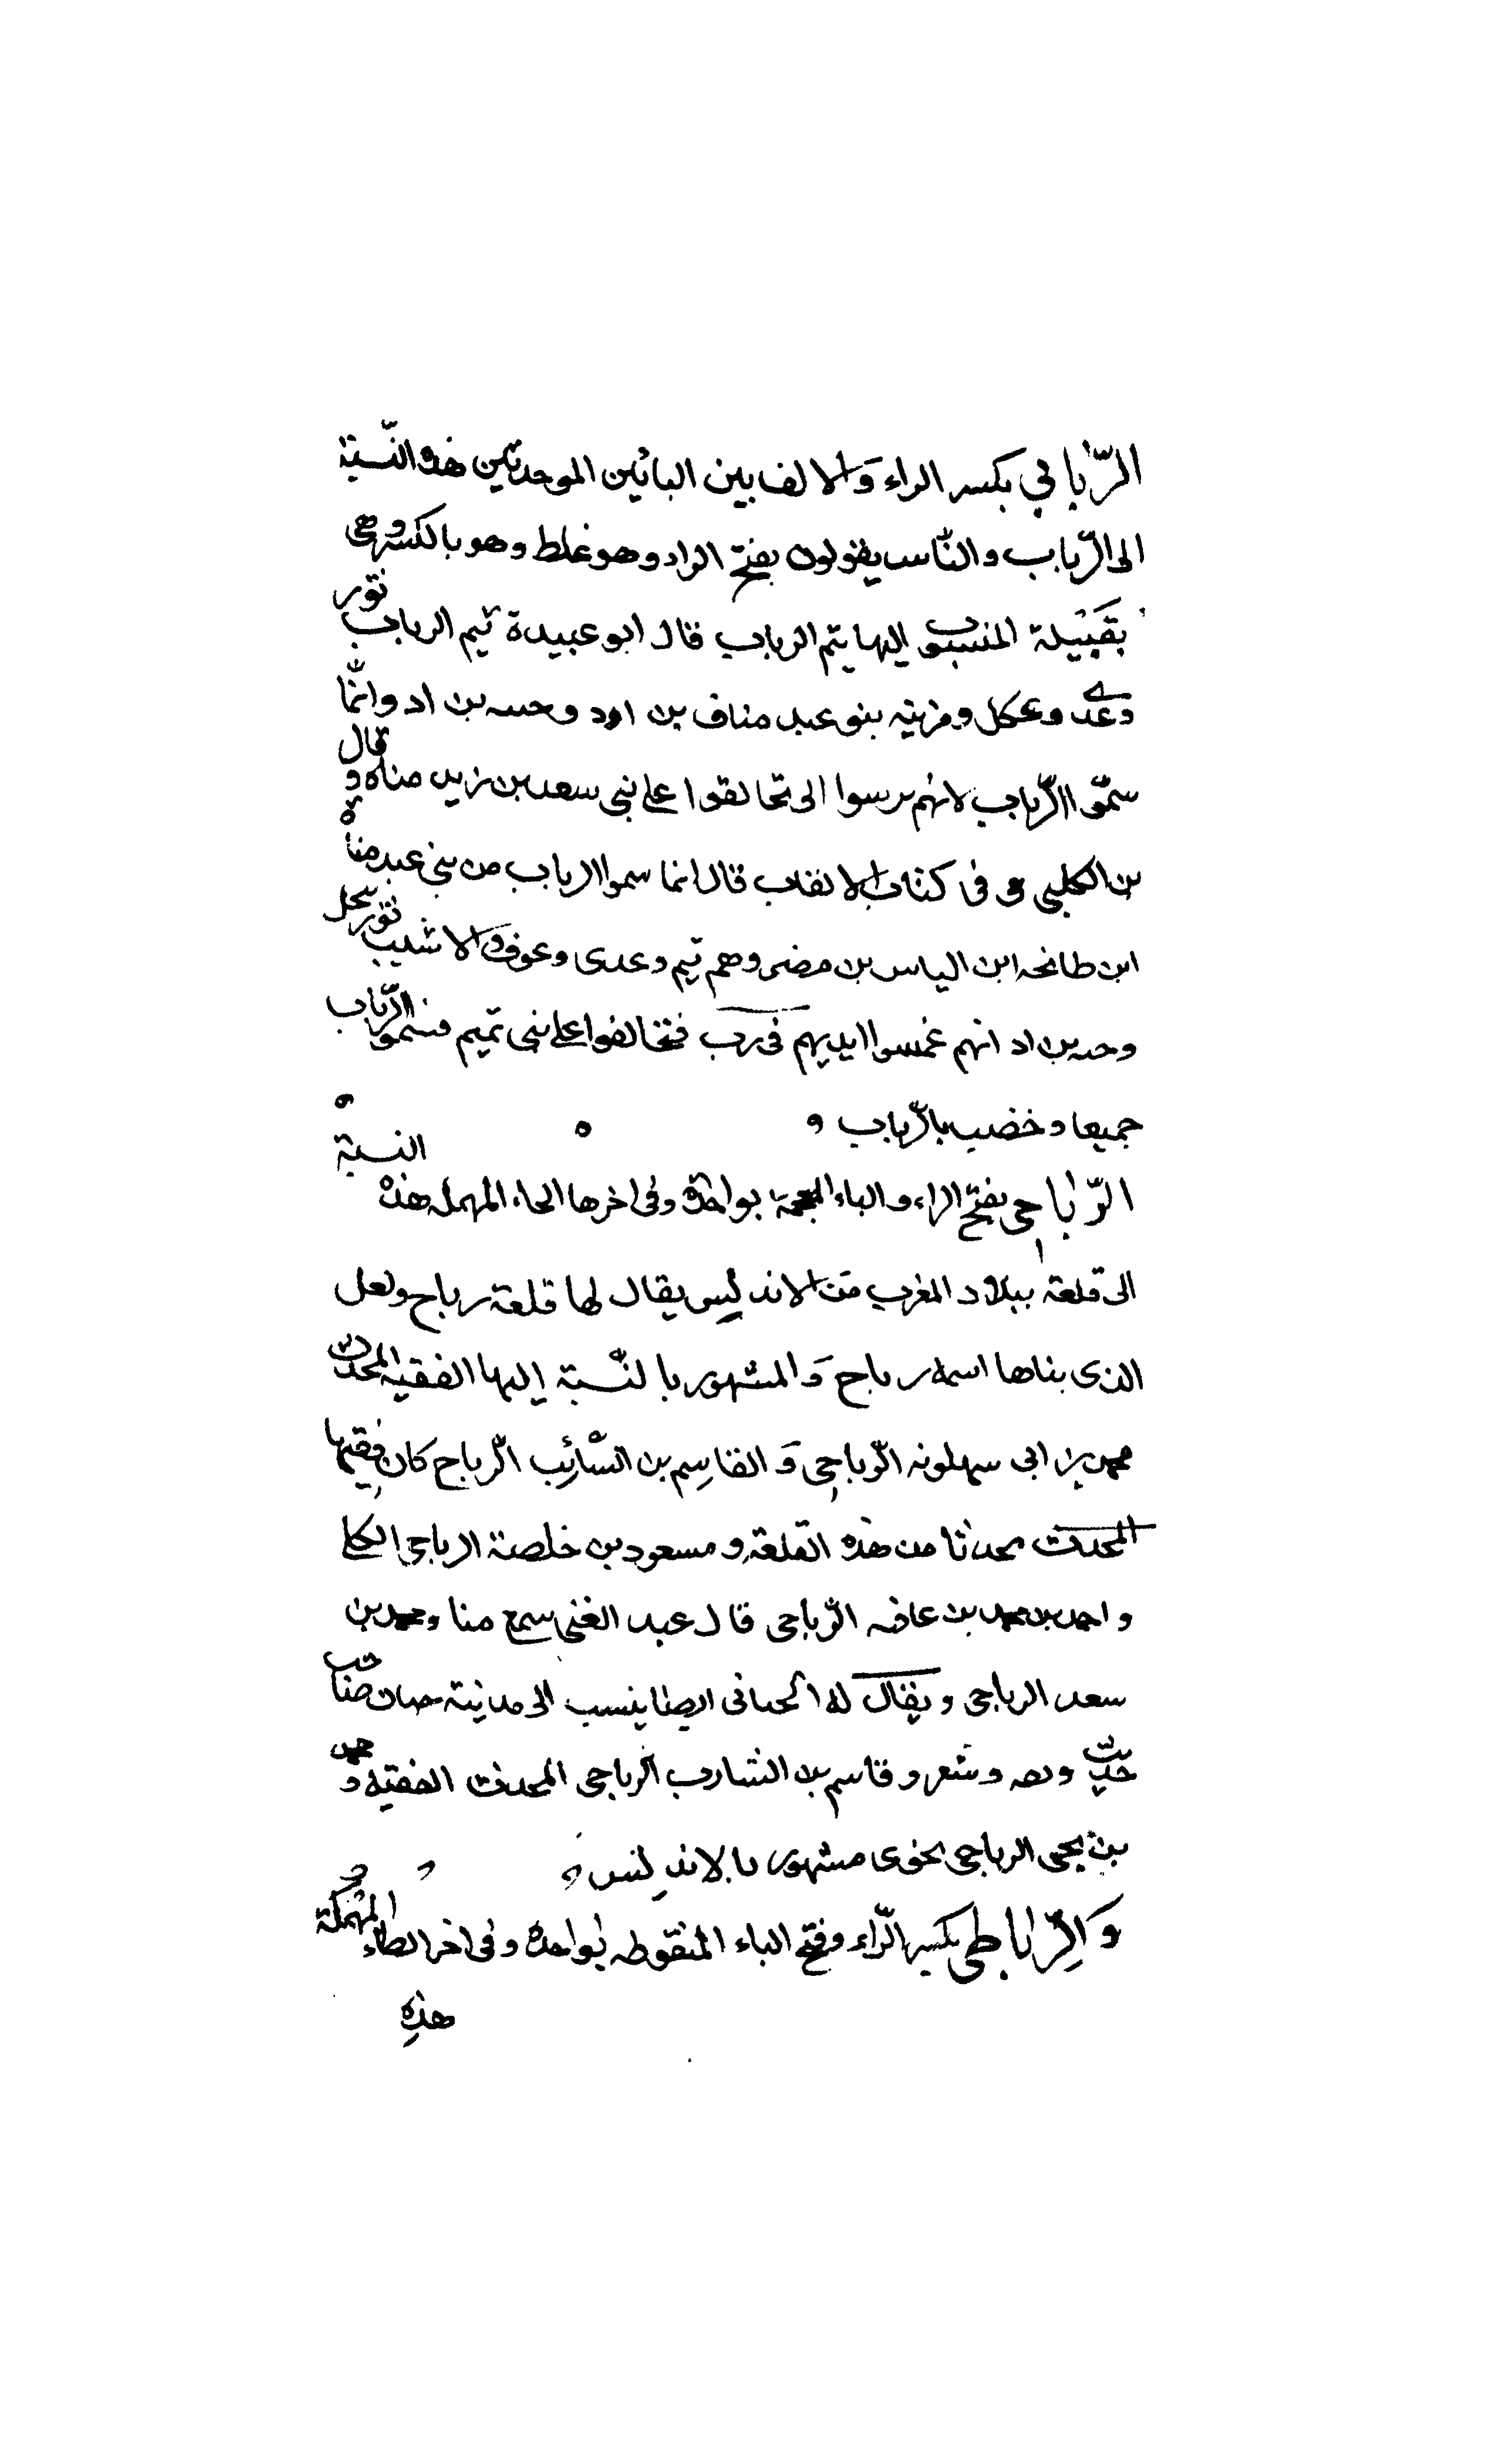 الرّبابي بكسر الراء وَالالف بين البائين الموحدتين هذه النّسبة
الى الرّباب والنّاس يقولون بفتح الراء وهو غلط وهو بالكسر وهى
بقَبَيلة المنسوب اليها يتم الرباب قال ابو عبيدة تيم الرباب ثور
وعدے وعكل ومزينه بنو عبد مناف بن اود وحسه بن اد وانّما
سمّو االرّباب لانهم برسوا الى تحالفوا على بنى سعد بن زيد مناه و قال
بن الكلبي فى كتاب الالقاب قال انما سموا الرباب من بنى عبد مناة
ابن طابخه ابن الياس بن مضر وهم تيم وعدى وعوف والاشيب ثور
وحسه بن اد انهم غمسوا ايديهم فى رب فتخالفوا على بنى تميم فسموا الرّباب
جميعا وخضب بالرّباب
الرّباحى بفتح الراء والباء المعجمة بواحدة وفى اخرها الحاء المهمله هذه النسبة
الى قلعة ببلاد المغرب من الاندليس يقال لها قلعة رباح ولعل
الذى بناها اسمه رباح وَالمشهور بالنّسبة اليها الفقيه المحدث
محمد بن ابى سهلونه الرّباحى وَالقاسِم بن السّائِب الرّباح كان فقيها
المحدث محدثا من هذه القلعة و مسعود بن خلصة الرباحى الكلى
واحمد بن محمد بن عافه الرّباحى قال عبد الغنى سمع منا ومحمد بن
سعد الرباحى ويقال له الحنانى ايضا ينسب الى مدينة حنان صاحب
حديث وشعر وقاسم بن الشارب الرباحى المحدث الفقيه و محمد
بن يحيى الرباحى نحوى مشهور بالاندلس
وَالرِّباطى بكسر الرّاء وفتح الباء المنقوطه بواحدة وفى اخر الطاء المهمَلة
هذِه